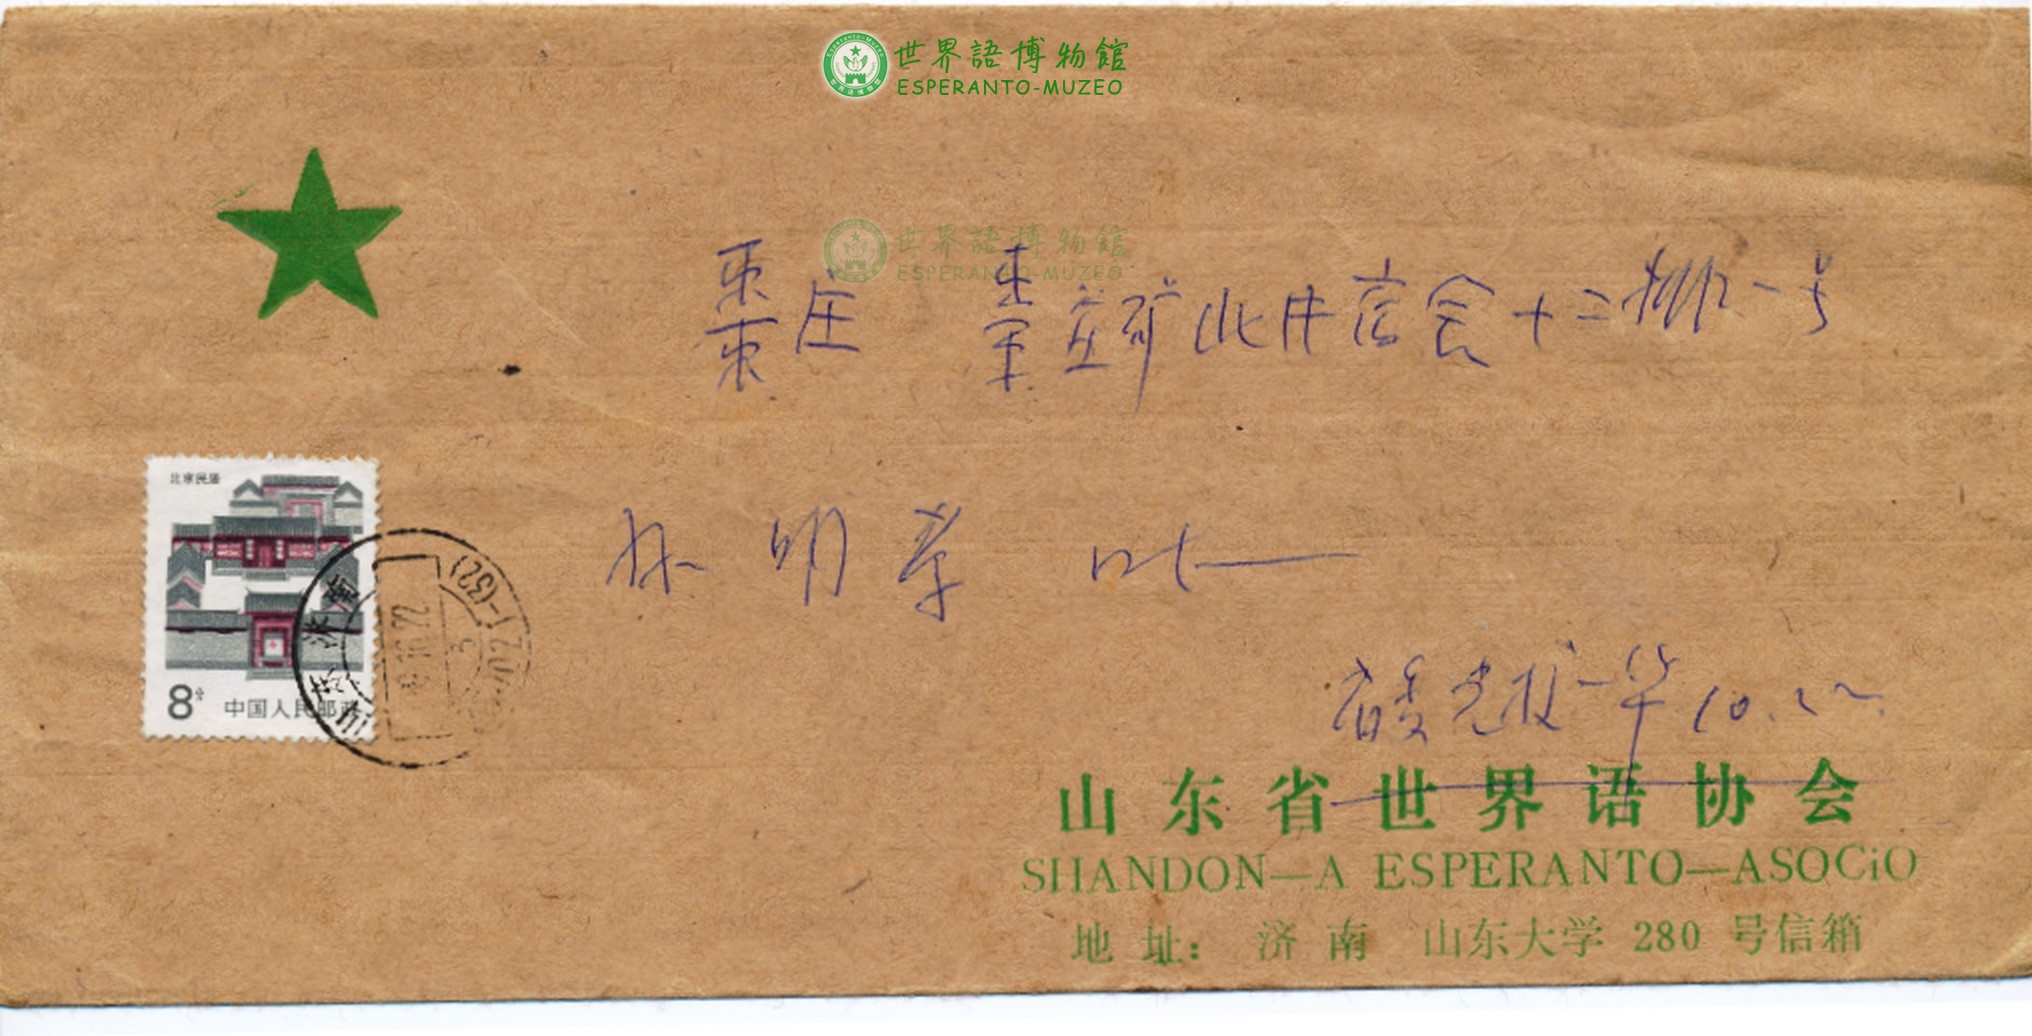 世界語博物館
ESPERANTO-MUZEO
世界語博物館
ESPERANTO-MUZEO
枣庄 枣庄矿北井宿舍十二排一号
明学
北京民居
8分 中国人民邮政
山东济南
10.22
山东省世界语协会
SHANDON—A ESPERANTO—ASOCiO
地址： 济南 山东大学 280 号信箱